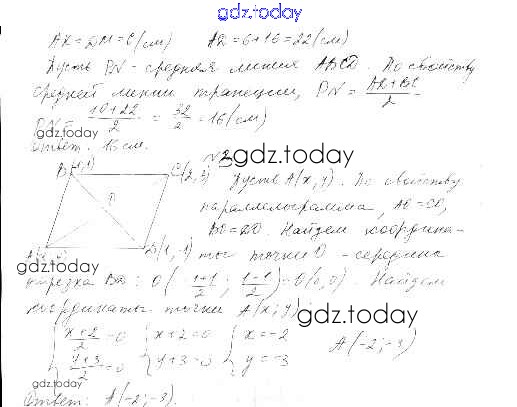 gdz.today
AK = DM = 6 (см) AD = 6+16 = 22 (см)
Пусть PN - средняя линия ABCD. По свойству
средней линии трапеции, PN = (AD+BC)/2
PN = (10+22)/2 = 32/2 = 16 (см)
Ответ: 16 см.
gdz.today
B(-1,1) C(2,3) Пусть A(x,y). По свойству
параллелограмма, AO = CO,
BO = OD. Найдем координа-
D(1,-1) ты точки O - середина
gdz.today
отрезка BD: O((-1+1)/2; (1-1)/2) = O(0,0). Найдем
координаты точки A(x;y):
gdz.today
{(x+2)/2 = 0 {x+2=0 {x=-2
{(y+3)/2 = 0 {y+3=0 {y=-3 A(-2;-3)
gdz.today
Ответ: A(-2;-3).